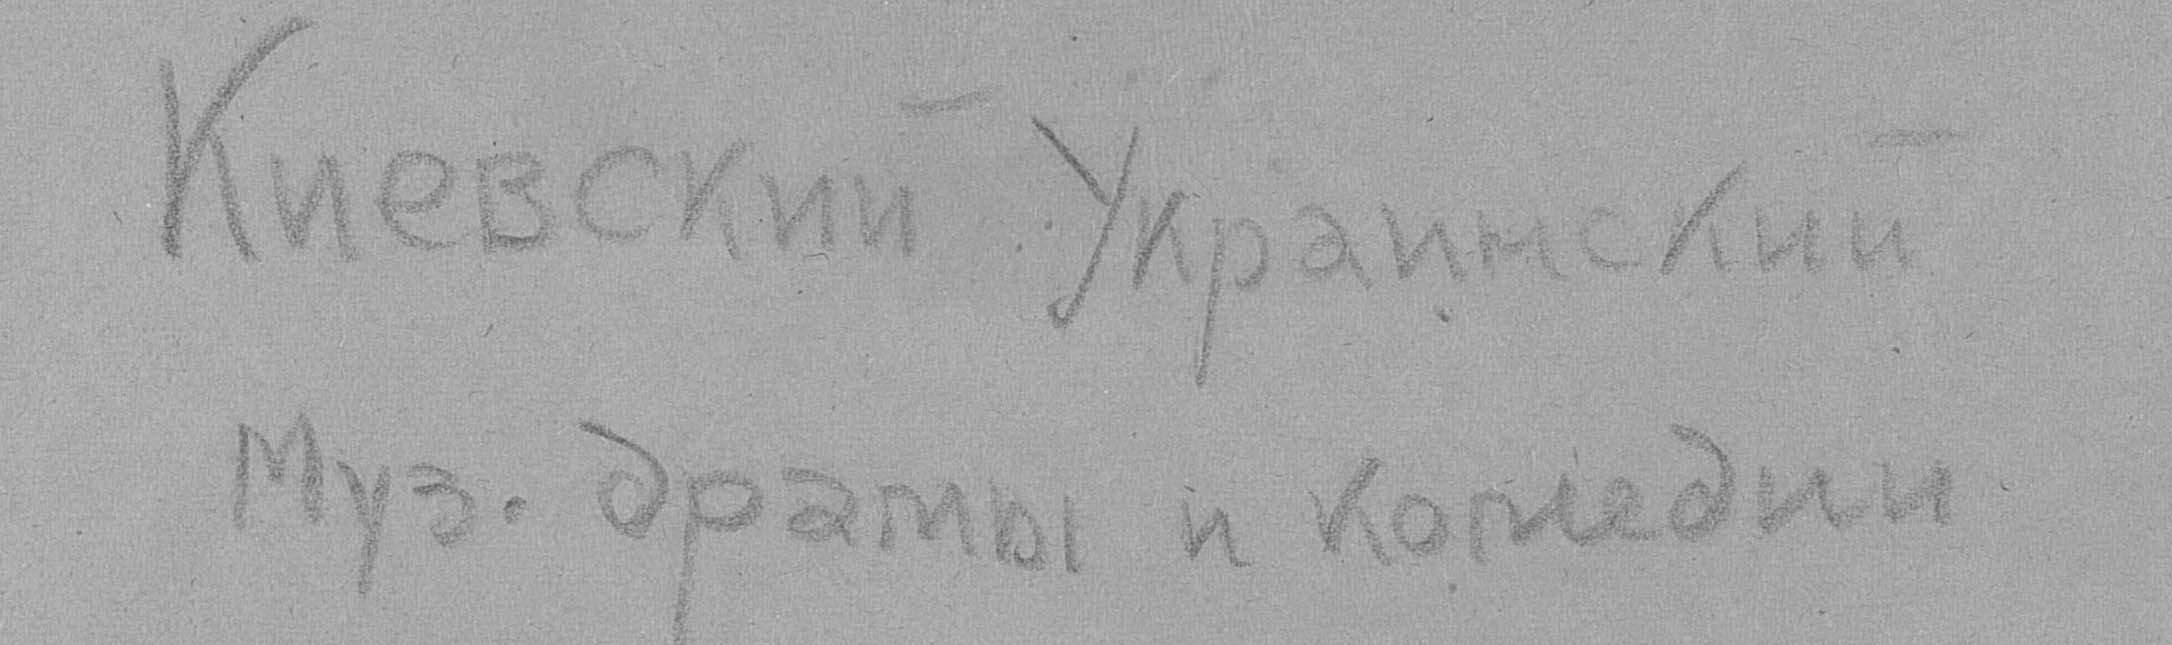 Киевский Украинский
Муз. драмы и комедии